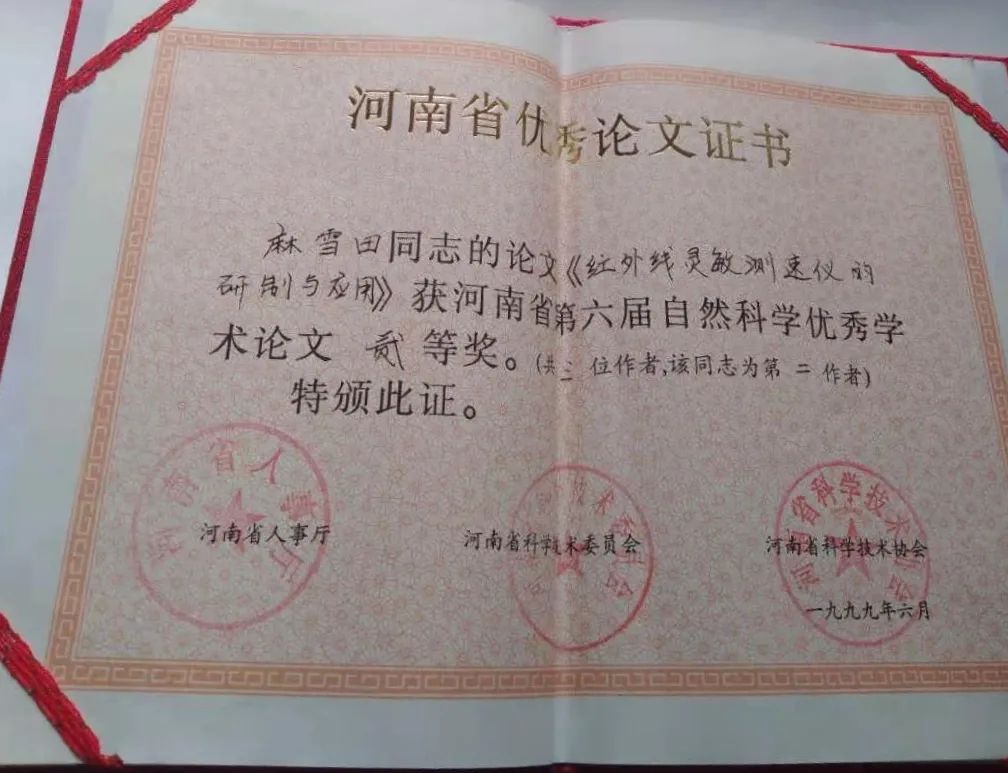 河南省优秀论文证书
麻雪田同志的论文《红外线灵敏测速仪的
研制与应用》获河南省第六届自然科学优秀学
术论文贰等奖。(共三位作者,该同志为第二作者)
特颁此证。
河南省人事厅
河南省科学技术委员会
河南省科学技术协会
一九九九年六月
河南省人事厅
河南省科学技术协会